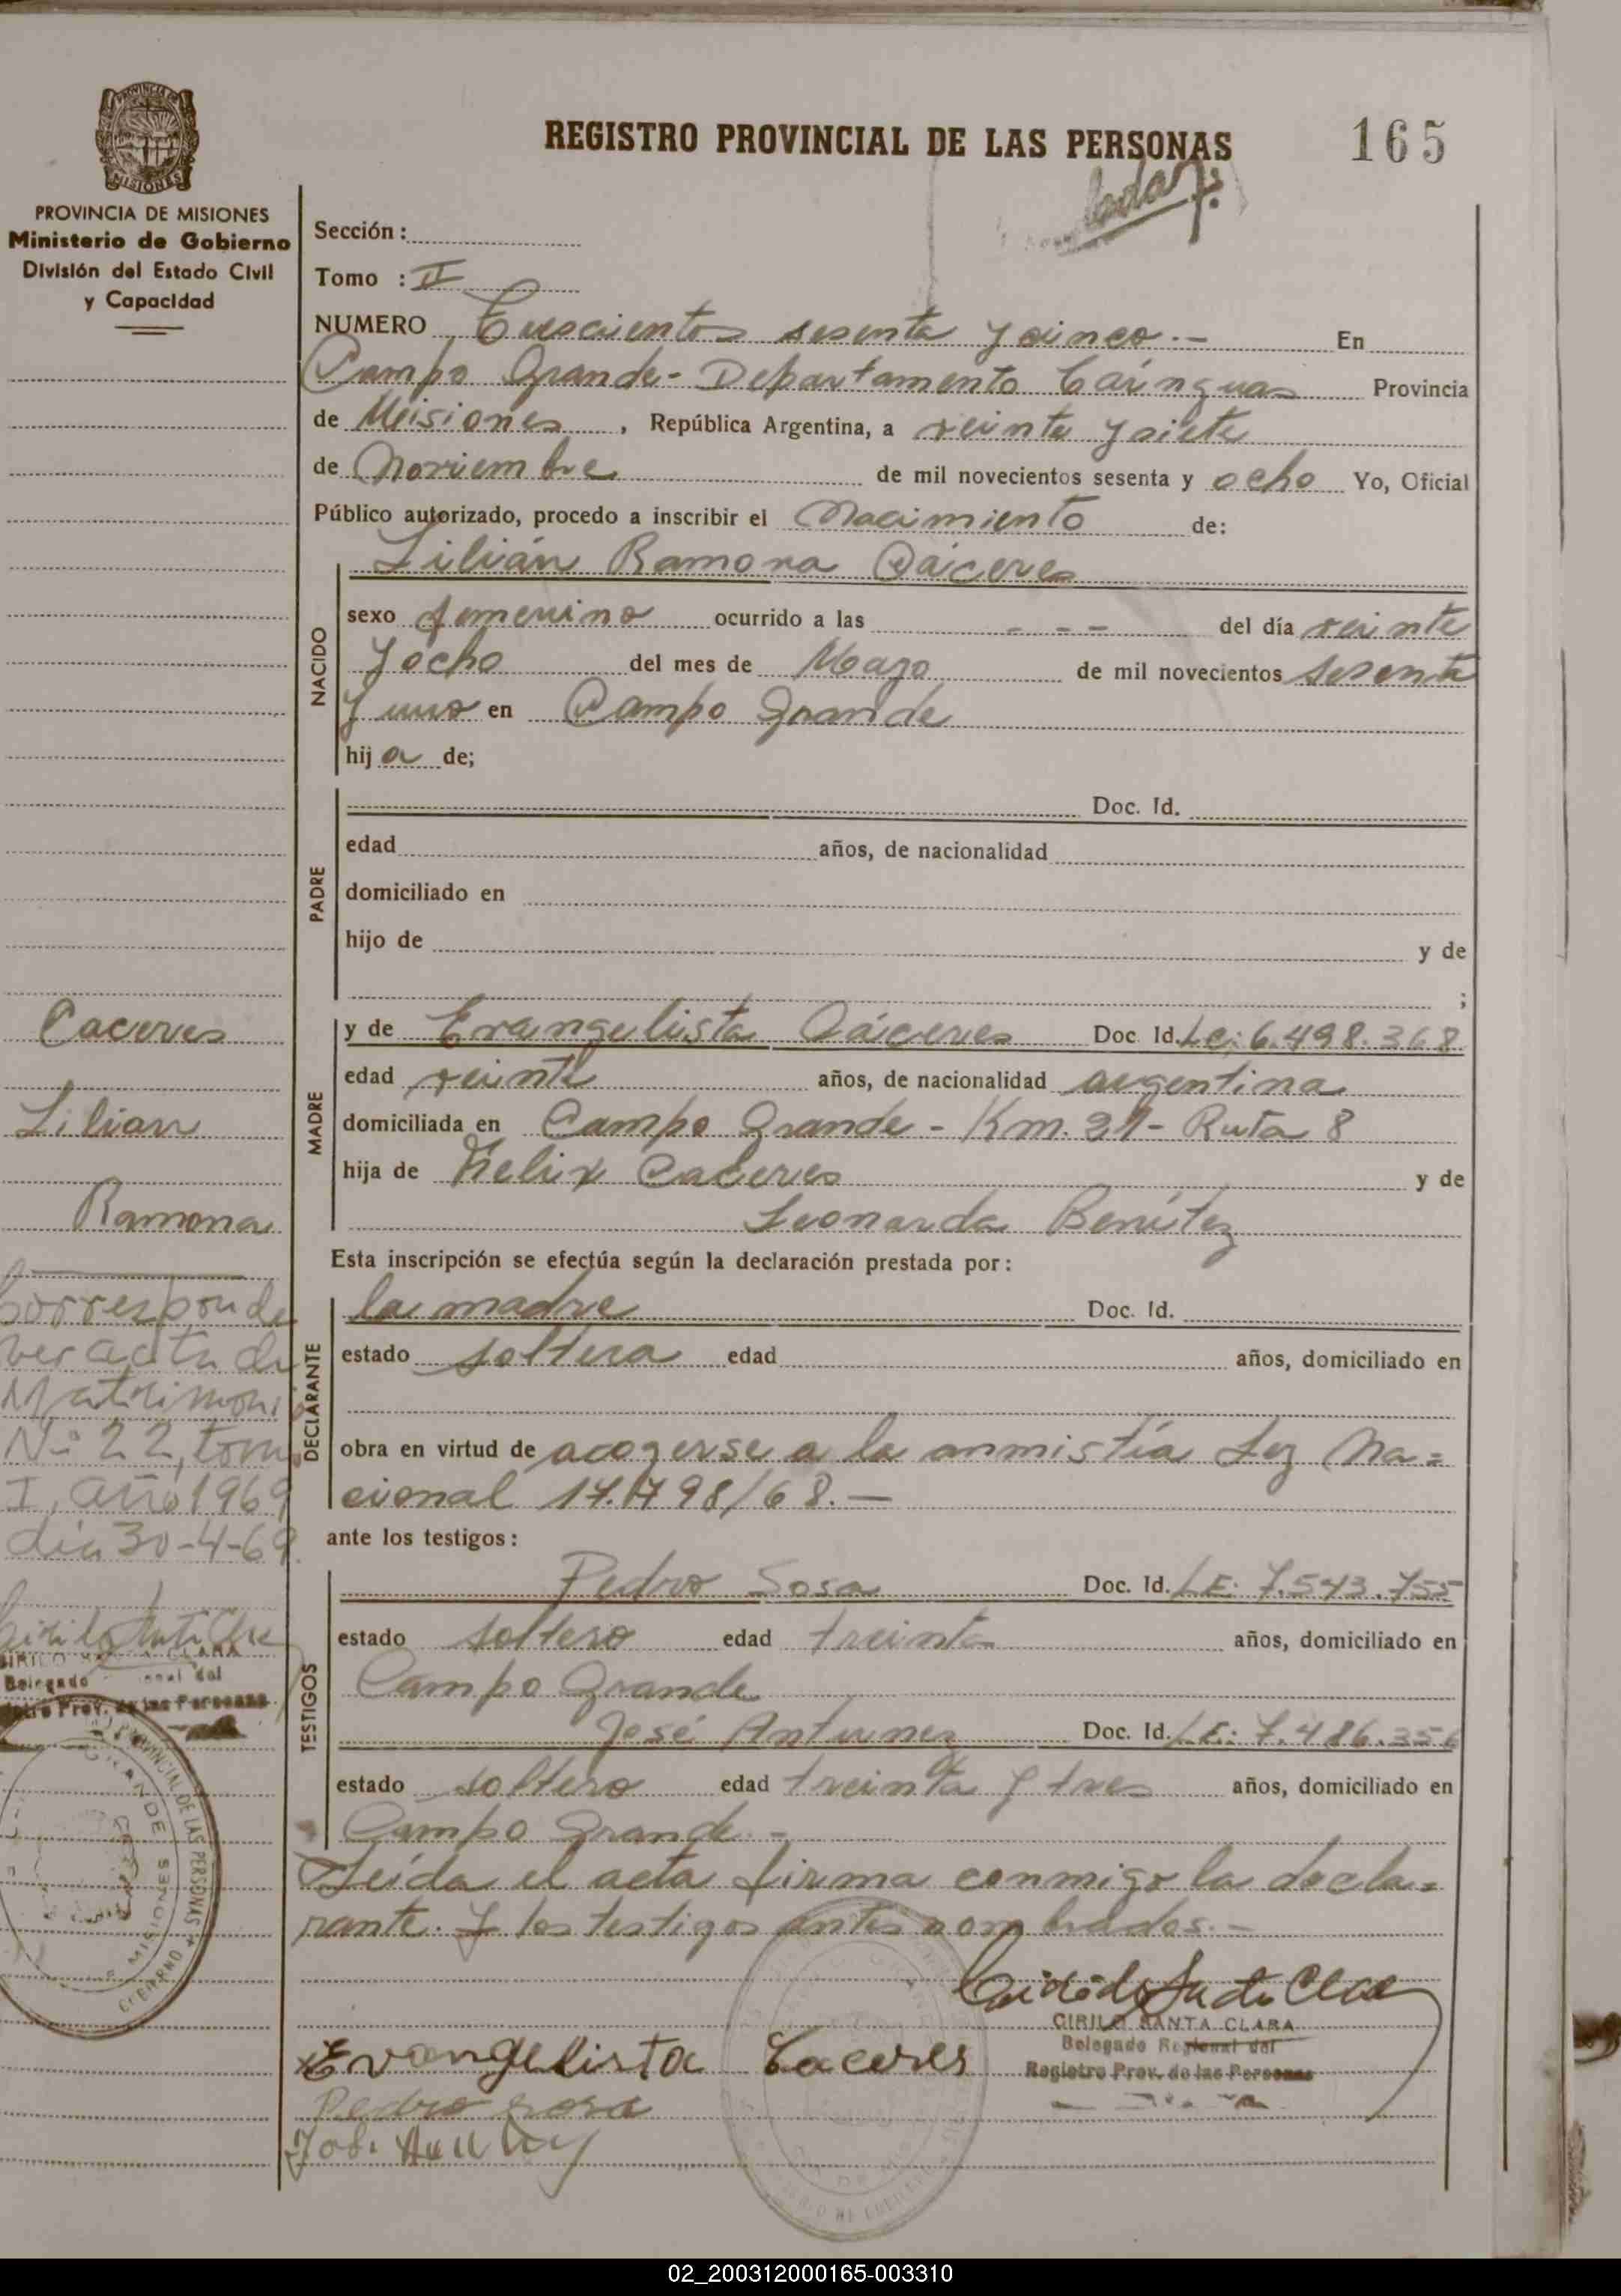 REGISTRO PROVINCIAL DE LAS PERSONAS
165
PROVINCIA DE MISIONES
Ministerio de Gobierno
División del Estado Civil
y Capacidad
Sección :
Tomo : II
NUMERO Trescientos sesenta y cinco.- En
Campo Grande- Departamento Cainguas Provincia
de Misiones, República Argentina, a veinte y siete
de Noviembre de mil novecientos sesenta y ocho Yo, Oficial
Público autorizado, procedo a inscribir el Nacimiento de:
NACIDO
Lilián Ramona Cáceres
sexo femenino ocurrido a las - - - del día veinte
y ocho del mes de Mayo de mil novecientos sesenta
y uno en Campo Grande
hija de;
PADRE
Doc. Id.
edad años, de nacionalidad
domiciliado en
hijo de y de
;
MADRE
y de Evangelista Cáceres Doc Id. Lc: 6.498.368
edad veinte años, de nacionalidad argentina
domiciliada en Campo Grande - Km. 21- Ruta 8
hija de Felix Caceres y de
Leonarda Benítez
Esta inscripción se efectúa según la declaración prestada por:
DECLARANTE
la madre Doc. Id.
estado soltera edad años, domiciliado en
obra en virtud de acogerse a la anmistía Ley Na=
cional 17.798/68.-
ante los testigos:
TESTIGOS
Pedro Sosa Doc. Id. LE: 7.543.755
estado soltero edad treinta años, domiciliado en
Campo Grande
José Antunez Doc. Id. LE: 7.486.356
estado soltero edad treinta y tres años, domiciliado en
Campo Grande.-
Leída el acta firma conmigo la decla=
rante. y los testigos antes nombrados.-
CIRILO SANTA CLARA
Delegado Regional del
Registro Prov. de las Personas
Evangelista Caceres
Pedro sosa
Caceres
Lilian
Ramona
Corresponde
ver acta de
Matrimoni
Nº 22, tomo
I, año 1969
día 30-4-69.
Delegado
Prov. de las Personas
PROVINCIAL DE LAS PERSONAS
02_200312000165-003310